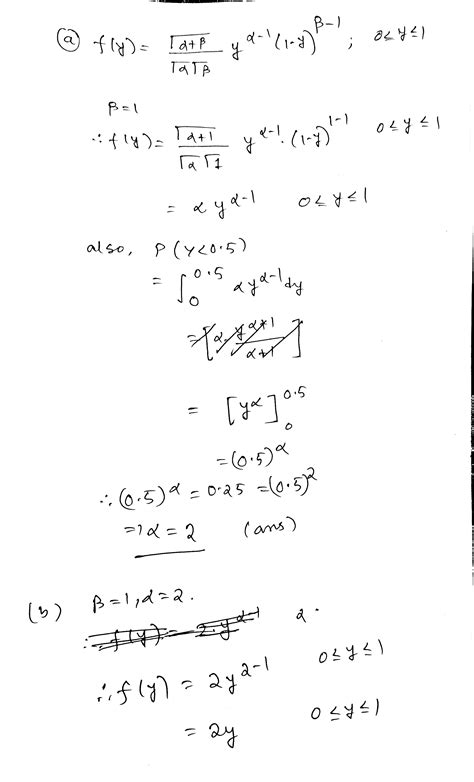 (a) f(y) = Γα+β / ΓαΓβ y^α-1 (1-y)^β-1 ; 0≤y≤1
β=1
∴ f(y) = Γα+1 / ΓαΓ1 y^α-1 . (1-y)^1-1 0≤y≤1
= αy^α-1 0≤y≤1
also, P(Y<0.5)
= ∫_0^0.5 αy^α-1 dy
= [α. y^α+1 / α+1]
= [y^α]_0^0.5
= (0.5)^α
∴ (0.5)^α = 0.25 = (0.5)^2
=> α = 2 (ans)
(b) β=1, α=2.
∴ f(y) = 2.y^2-1 2.
∴ f(y) = 2y^2-1 0≤y≤1
= 2y 0≤y≤1